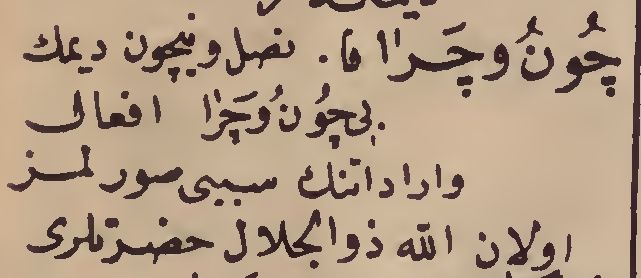 چُونُ وچَرَاا فا. نصل ونیچون دیمك
بی چوُنُ وَچَرْا افعال
وارادتنك سببی صورلمز
اولان الله ذوالجلال حضرتلری